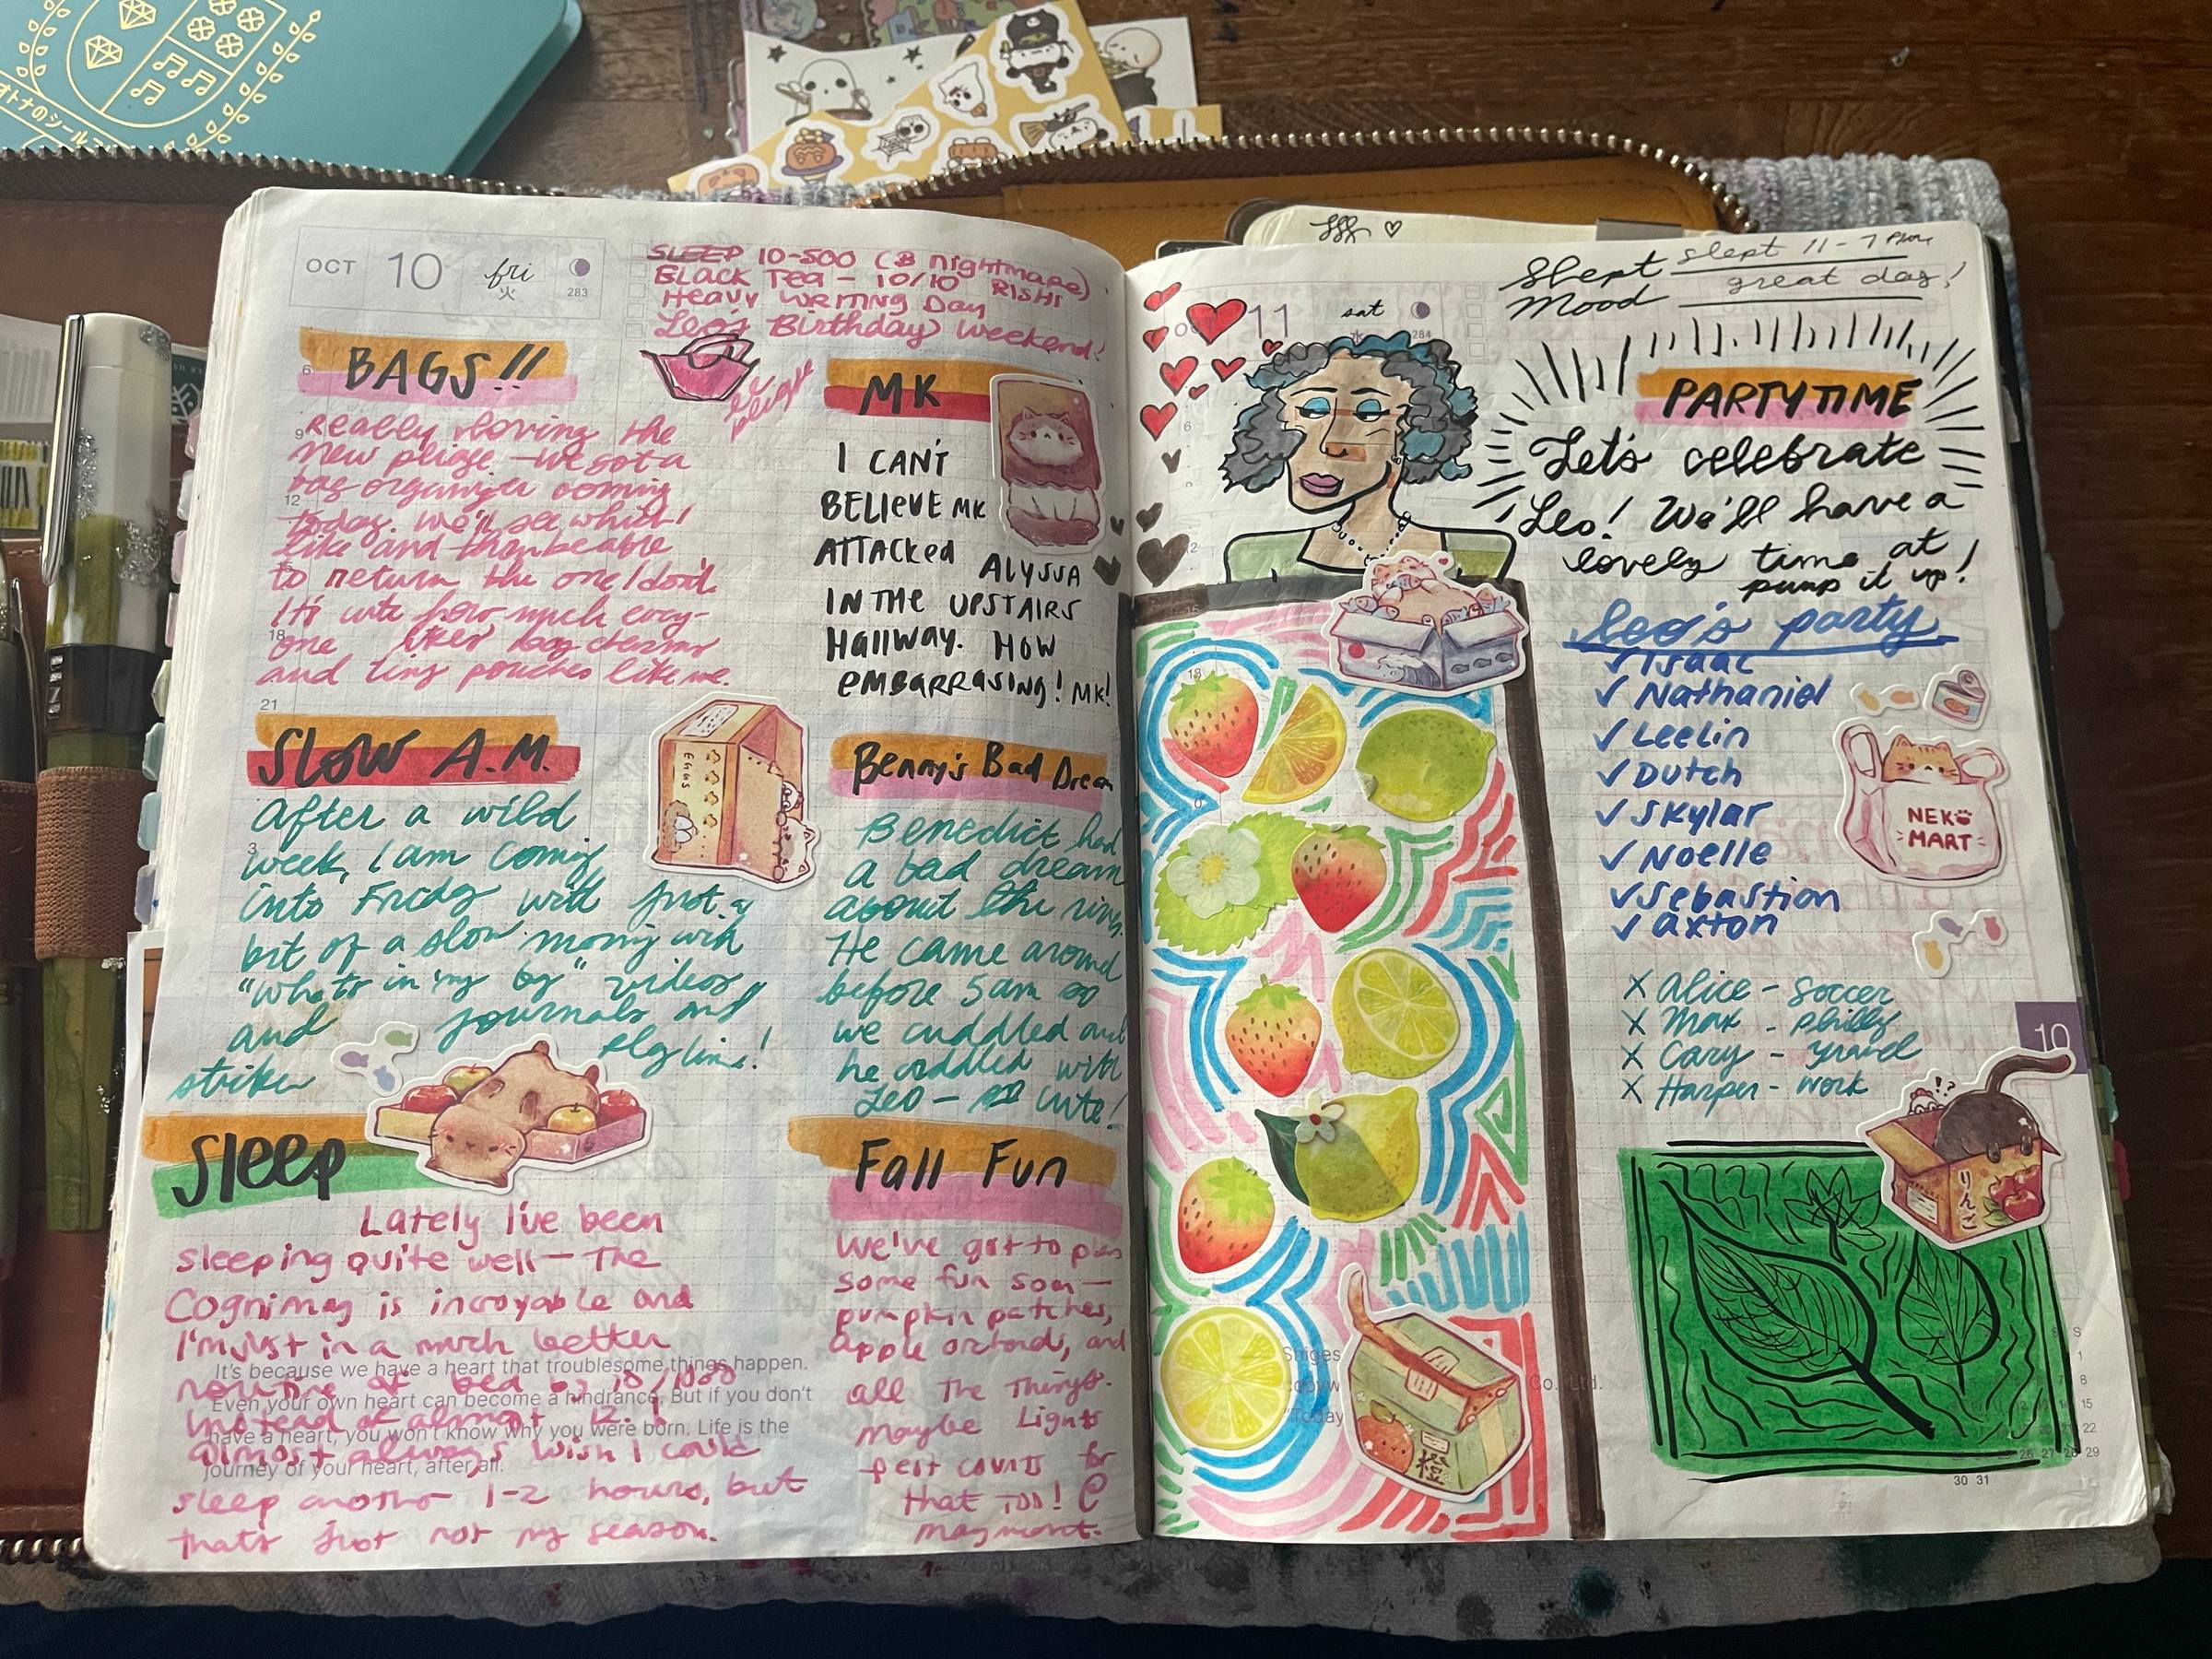 オトナのシール
OCT 10 fri
火
283
SLEEP 10-500 (B nightmare)
BLACK TEA - 10/10 RISHI
Heavy Writing Day
Leo's Birthday weekend!
BAGS!!
Really loving the
new pliage - we got a
bag organizer coming
today. We'll see which I
like and then be able
to return the one I don't.
It's cute how much every-
one likes bag charms
and tiny pouches like me.
le pliage
MK
I CAN'T
BELIEVE MK
ATTACKED ALYSSA
IN THE UPSTAIRS
HALLWAY. HOW
EMBARRASING! MK!
SLOW A.M.
After a wild
week, I am coming
into Friday with just a
bit of a slow morning with
"what's in my bag" videos
and journals and
EGGS
Benny's Bad Dream
Benedict had
a bad dream
about the
He came around
before 5am so
we cuddled and
he cuddled with
Leo - cute!
Sleep
Lately I've been
sleeping quite well - The
Cognimag is incroyable and
I'm just in a much better
routine of bed by 10/1030
instead of almost 12. I
almost always wish I could
sleep another 1-2 hours, but
that's just not my season.
It's because we have a heart that troublesome things happen.
Even your own heart can become a hindrance. But if you don't
have a heart, you won't know why you were born. Life is the
journey of your heart, after all.
Fall Fun
We've got to plan
some fun soon -
pumpkin patches,
apple orchards, and
all the things.
Maybe Lights
fest counts for
that too! @
11 sat
284
Slept slept 11-7
Mood great day!
PARTYTIME
Let's celebrate
Leo! We'll have a
lovely time at
pump it up!
Leo's party
✓ Isaac
✓ Nathaniel
✓ Leelin
✓ Dutch
✓ Skylar
✓ Noelle
✓ Sebastion
✓ axton
X Alice - soccer
X Max - philly
X Cary - travel
X Harper - work
NEKO
MART
10
!?
りんご
橙
Shiges
copyw
Co., Ltd.
"Today
30 31